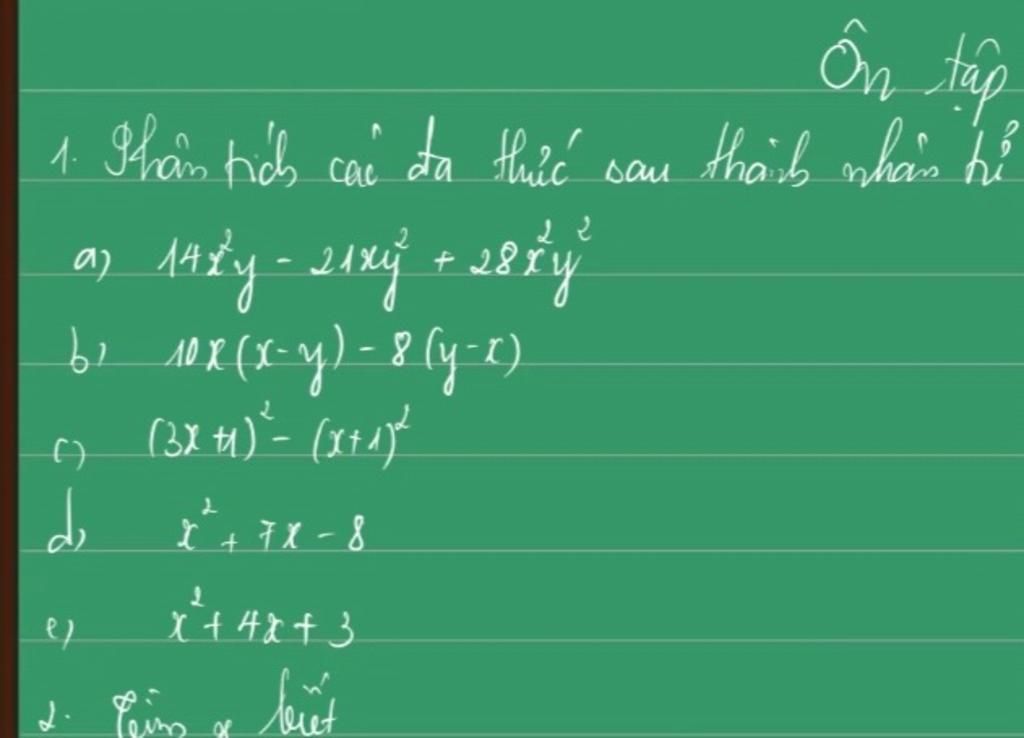 Ôn tập
1. Phân tích các đa thức sau thành nhân tử
a) 14x²y - 21xy² + 28x²y²
b) 10x(x-y) - 8(y-x)
c) (3x+1)² - (x+1)²
d) x² + 7x - 8
e) x² + 4x + 3
2. Tìm x biết